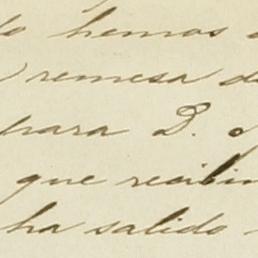 lo hemos
remesa de
para D.
que recibim
ha salido